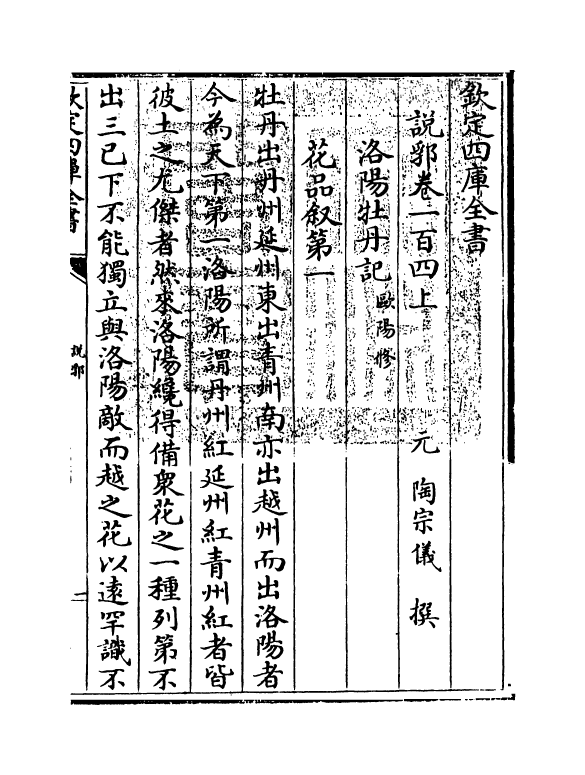 欽定四庫全書
說郛卷一百四上　元　陶宗儀　撰
洛陽牡丹記歐陽修
花品叙第一
牡丹出丹州延州東出青州南亦出越州而出洛陽者
今為天下第一洛陽所謂丹州紅延州紅青州紅者皆
彼土之尤傑者然來洛陽纔得備衆花之一種列第不
出三已下不能獨立與洛陽敵而越之花以逺罕識不
欽定四庫全書
說郛